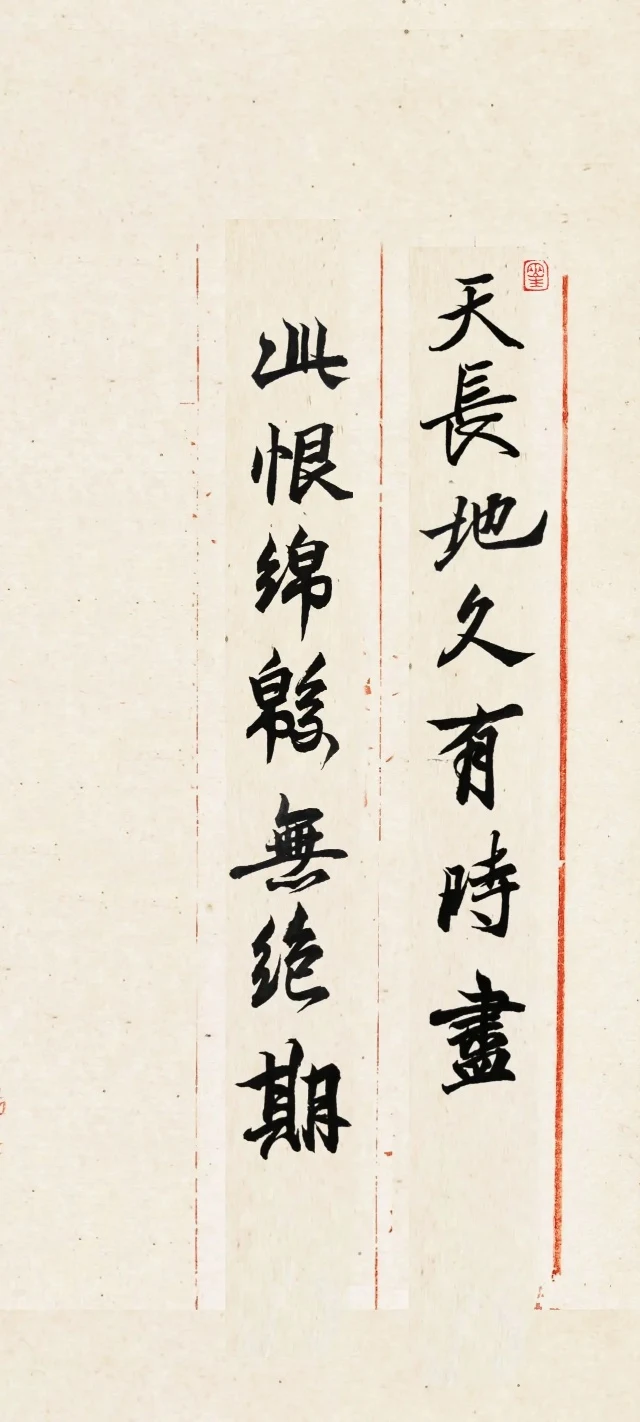 天長地久有時盡
此恨綿緜無絶期